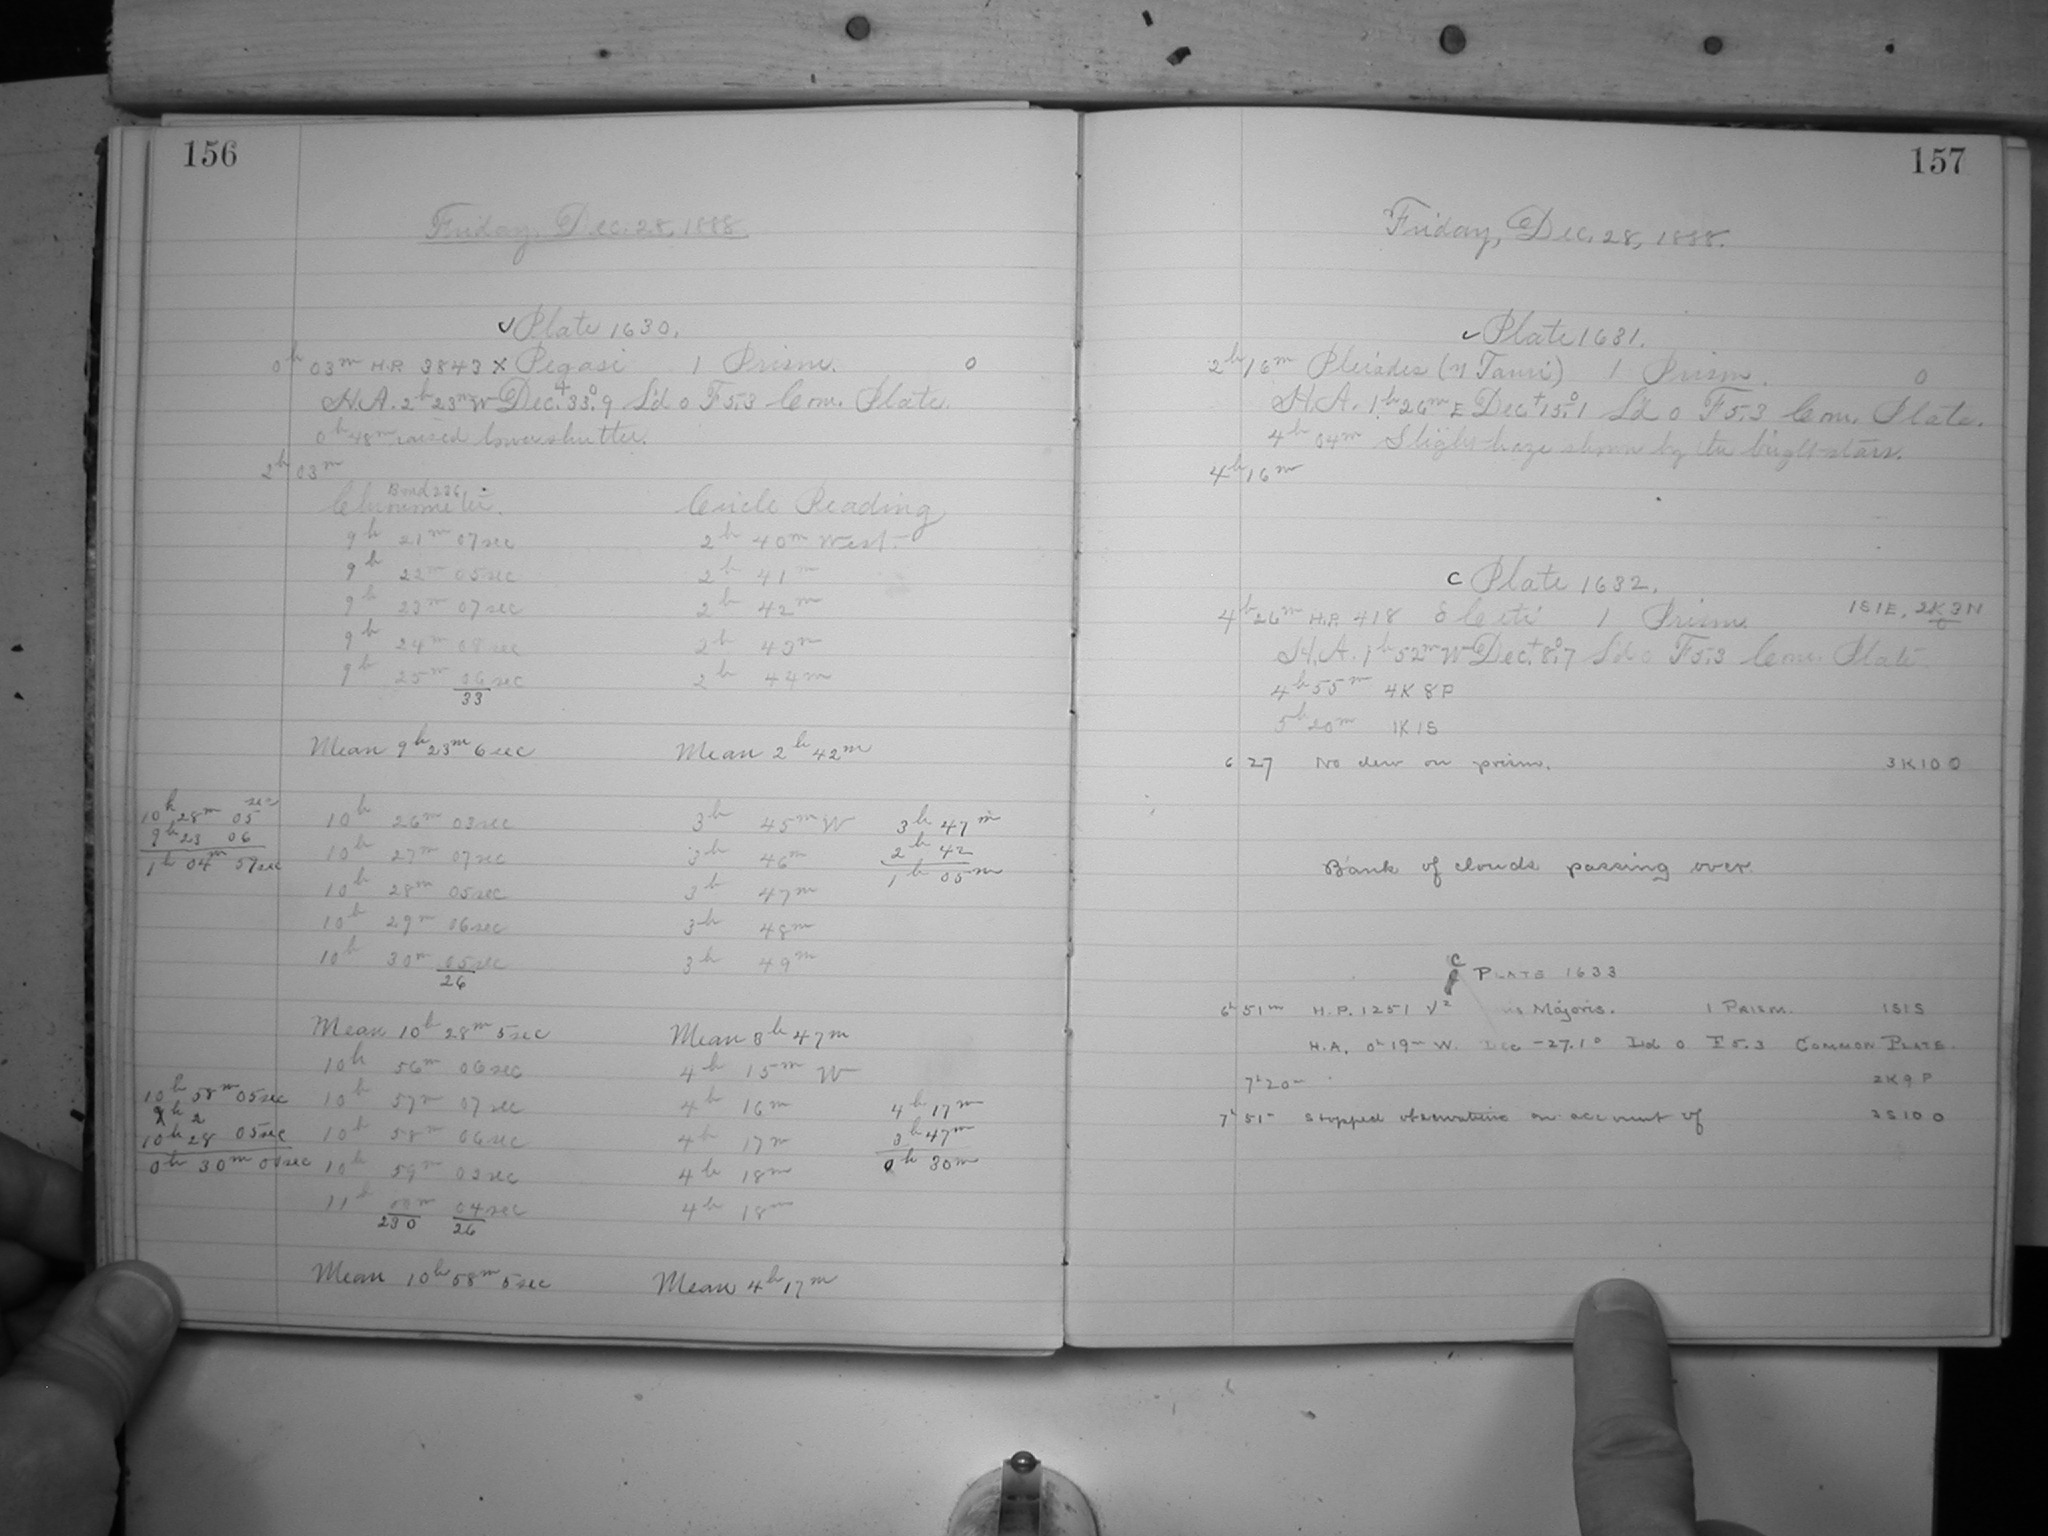 156
Friday, Dec. 28, 1888.
✓ Plate 1630.
0h 03m H.P. 3843 χ Pegasi 1 Prism. 0
H.A. 2h 23m W Dec. +33.°9 L'd 0 F5.3 Com. Plate.
0h 48m raised lower shutter.
2h 03m
Bond 236
Chronometer. Circle Reading
9h 21m 07sec 2h 40m West.
9h 22m 05sec 2h 41m
9h 23m 07sec 2h 42m
9h 24m 08sec 2h 43m
9h 25m 06sec 2h 44m
33
Mean 9h 23m 6sec Mean 2h 42m
10h 28m 05sec 10h 26m 03sec 3h 45m W 3h 47m
9h 23 06 10h 27m 07sec 3h 46m 2h 42
1h 04m 59sec 10h 28m 05sec 3h 47m 1h 05m
10h 29m 06sec 3h 48m
10h 30m 05sec 3h 49m
26
Mean 10h 28m 5sec Mean 3h 47m
10h 56m 06sec 4h 15m W
10h 58m 05sec 10h 57m 07sec 4h 16m 4h 17m
9h 2
10h 28 05sec 10h 58m 06sec 4h 17m 3h 47m
0h 30m 00sec 10h 59m 03sec 4h 18m 0h 30m
11h 00m 04sec 4h 18m
290 26
Mean 10h 58m 5sec Mean 4h 17m
157
Friday, Dec. 28, 1888.
✓ Plate 1631.
2h 16m Pleiades (η Tauri) 1 Prism. 0
H.A. 1h 26m E Dec +15.°1 L'd 0 F5.3 Com. Plate.
4h 04m Slight haze shown by the bright stars.
4h 16m
C Plate 1632.
4h 26m H.P. 418 δ Ceti 1 Prism. 1S1E, 2K3N
0
H.A. 1h 52m W Dec. +8.°7 L'd 0 F5.3 Com. Plate
4h 55m 4K8P
5h 20m 1K1S
6 27 No dew on prism. 3K10O
Bank of clouds passing over.
C Plate 1633
6h 51m H.P. 1251 ν2 Majoris. 1 Prism. 1S1S
H.A. 0h 19m W. Dec -27.1° L'd 0 F5.3 Common Plate.
7h 20m 2K9P
7h 51m Stopped observations on account of 3S10O